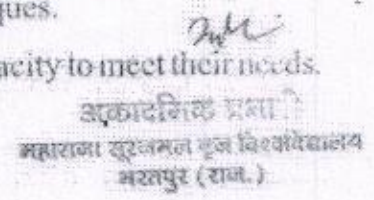 ques.
acity to meet their needs.
अकादमिक प्रभारी
महाराजा सूरजमल बृज विश्वविद्यालय
भरतपुर (राज.)